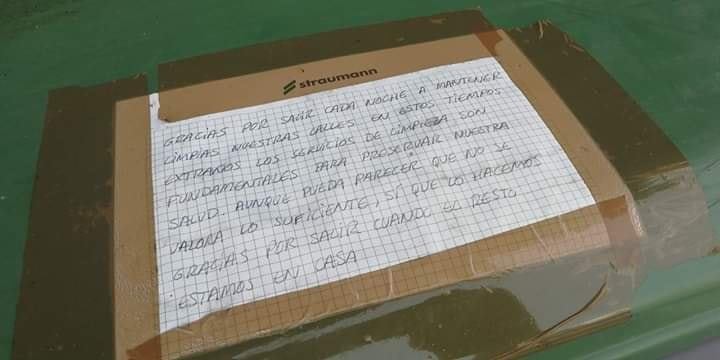 straumann
GRACIAS POR SALIR CADA NOCHE A MANTENER
LIMPIAS NUESTRAS CALLES EN ESTOS TIEMPOS
EXTRAÑOS LOS SERVICIOS DE LIMPIEZA SON
FUNDAMENTALES PARA PRESERVAR NUESTRA
SALUD. AUNQUE PUEDA PARECER QUE NO SE
VALORA LO SUFICIENTE, SÍ QUE LO HACEMOS
GRACIAS POR SALIR CUANDO EL RESTO
ESTAMOS EN CASA